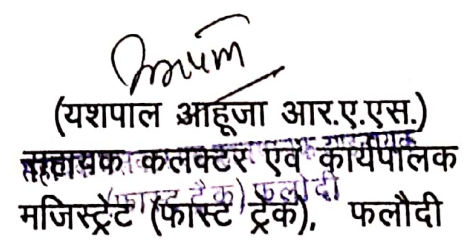 (यशपाल आहूजा आर.ए.एस.)
सहायक कलक्टर एवं कार्यपालक
(फास्ट ट्रैक) फलोदी
मजिस्ट्रेट (फास्ट ट्रेक), फलौदी